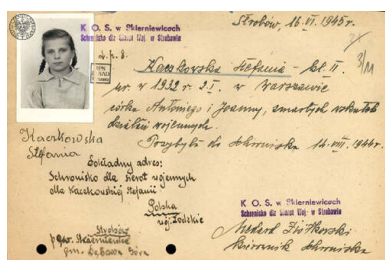 K. O. S. w Skierniewicach
Schronisko dla Sierot Woj. w Strobowie
Strobów, 16.VI. 1945 r.
L. p. 8.
Kaczkowska Stefania - lat 11
ur. w 1932 r. 2.I. w Warszawie
córka Antoniego i Joanny, zmarłych wskutek
działań wojennych.
Przybyła do schroniska 14.VIII. 1944 r.
Kaczkowska
Stefania
Dokładny adres:
Schronisko dla sierot wojennych
dla Kaczkowskiej Stefanii
Polska
woj. Łódzkie
Strobów
p-ta Skierniewice
gm. Dębowa Góra
K. O. S. w Skierniewicach
Schronisko dla Sierot Woj. w Strobowie
kierownik schroniska